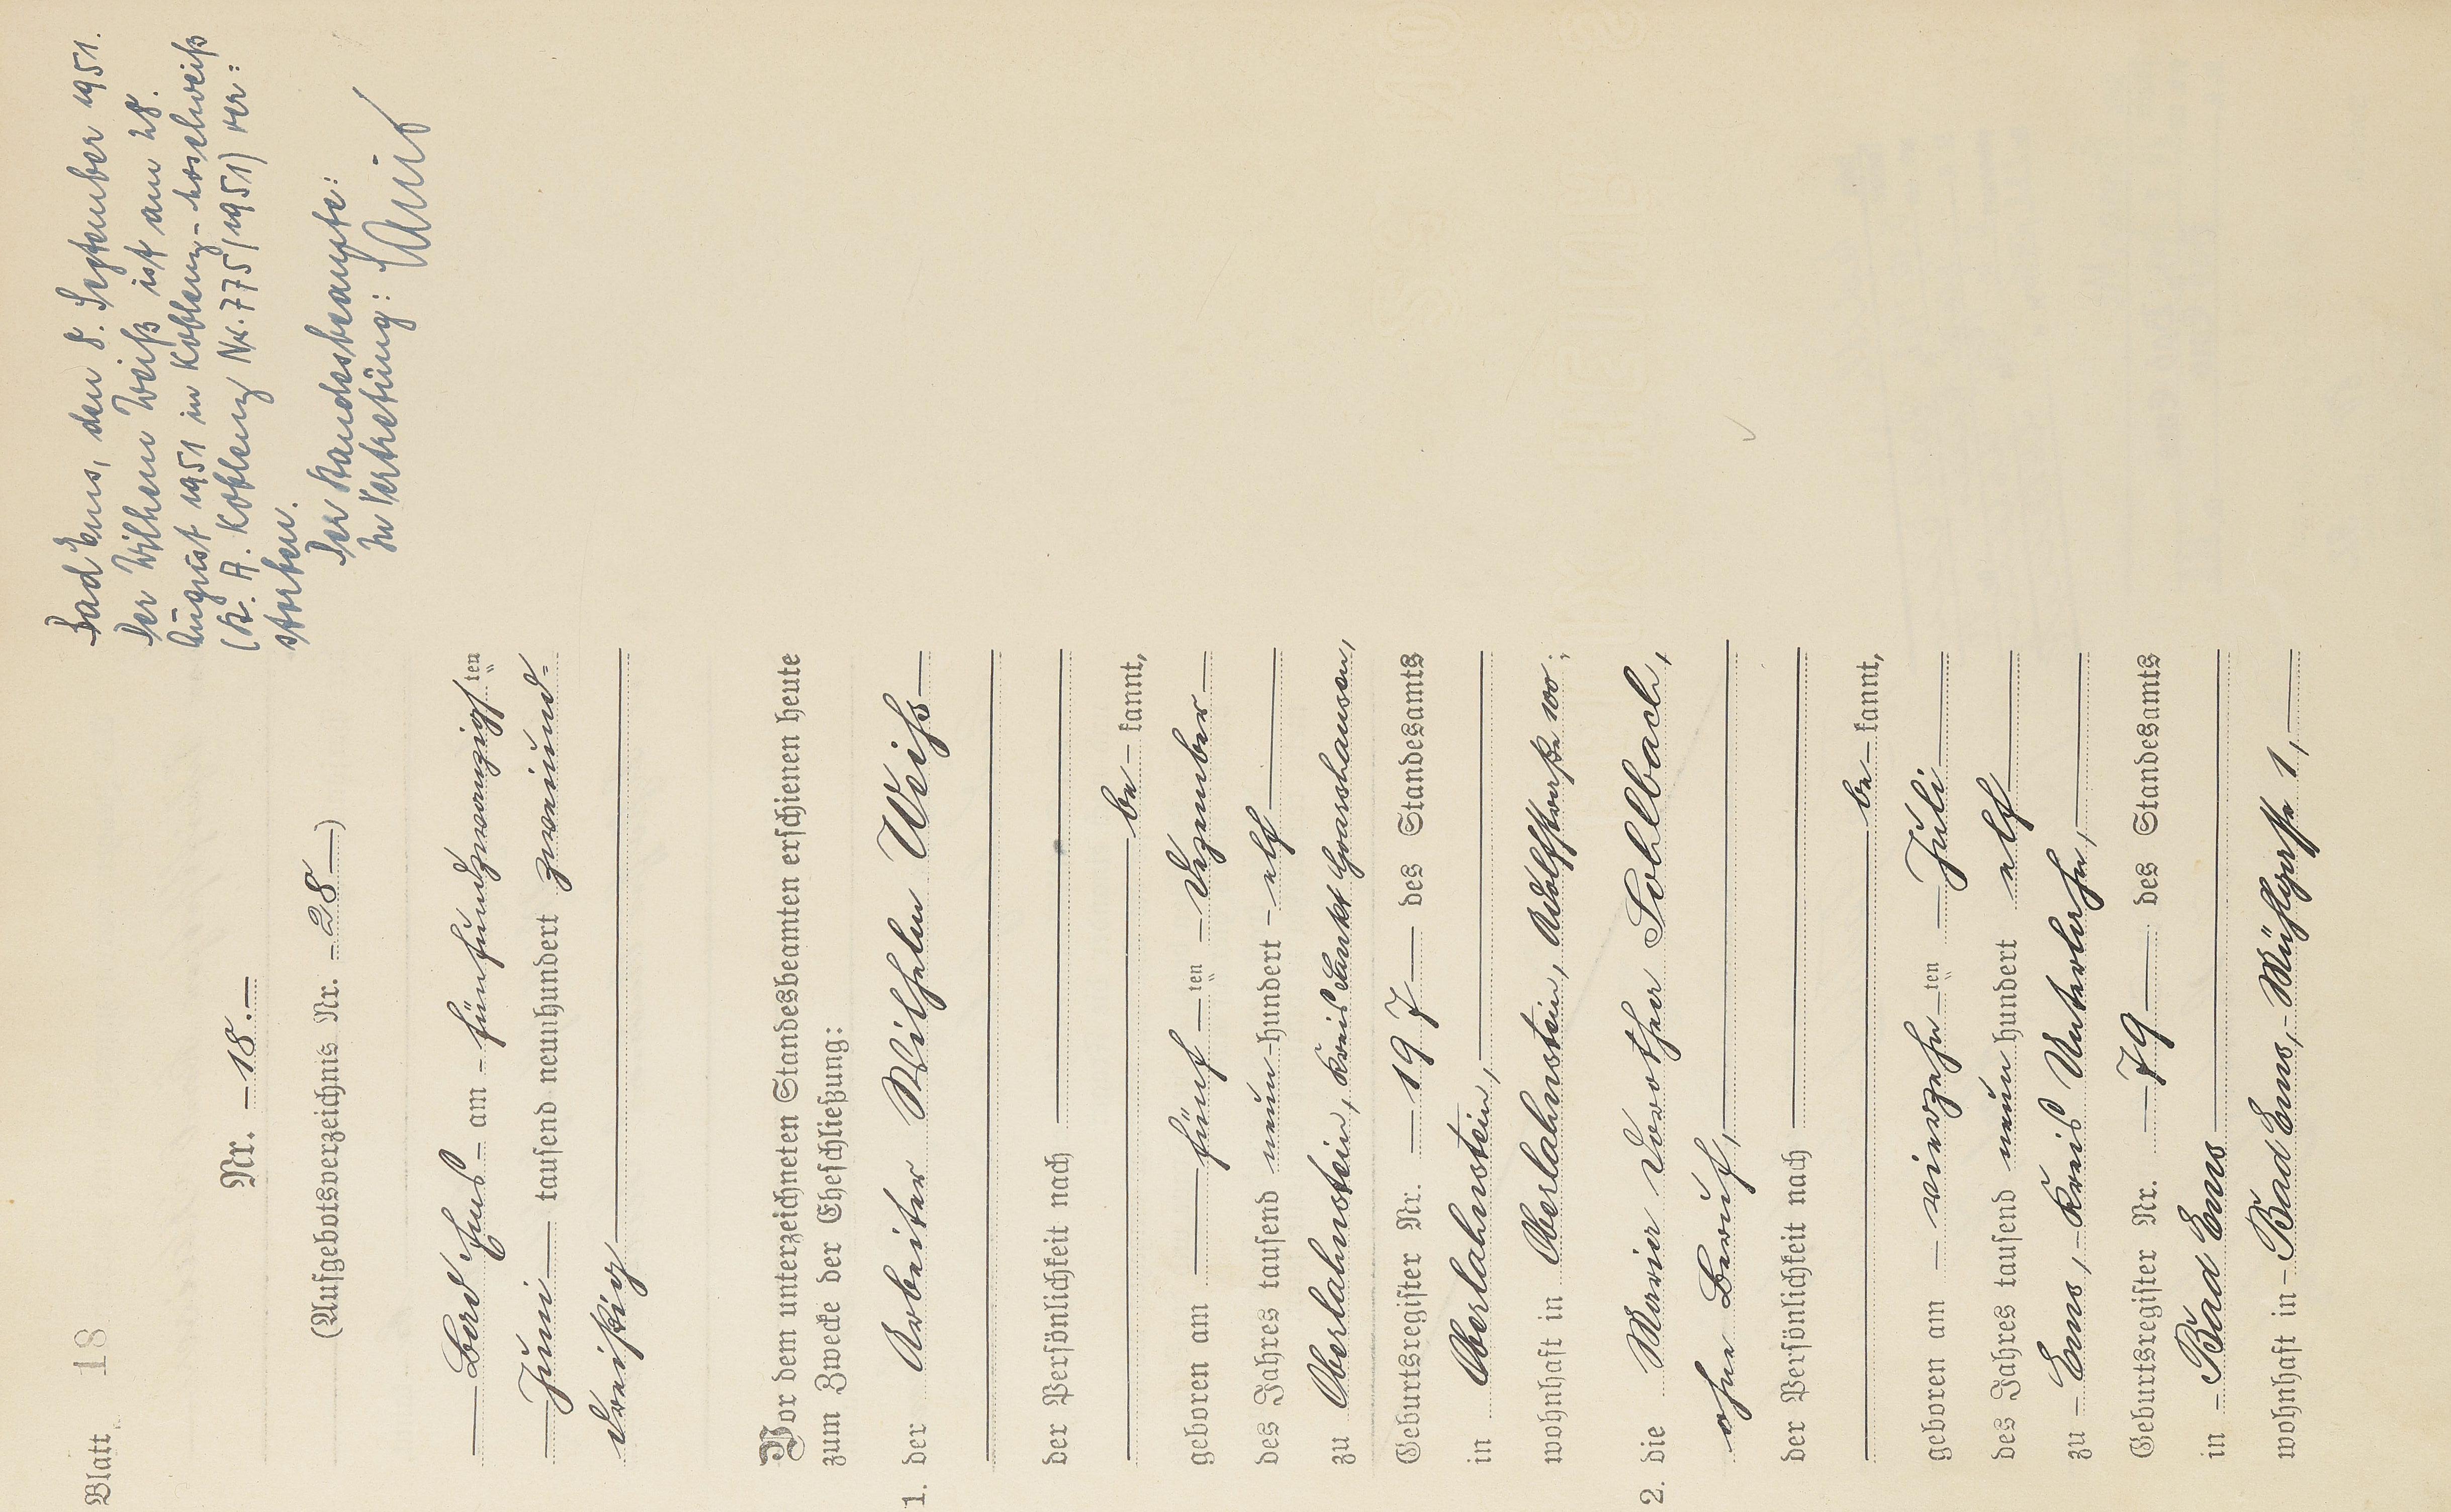 Blatt 18
Nr. 18.
(Aufgebotsverzeichnis Nr. 28)
Bad Ems am fünfundzwanzigsten
Juni tausend neunhundert zweiund-
dreißig
Vor dem unterzeichneten Standesbeamten erschienen heute
zum Zwecke der Eheschließung:
1. der Arbeiter Wilhelm Weiß
der Persönlichkeit nach
be kannt,
geboren am fünf ten Dezember
des Jahres tausend neun hundert elf
zu Oberlahnstein, Kreis Sankt Goarshausen,
Geburtsregister Nr. 197 des Standesamts
in Oberlahnstein,
wohnhaft in Oberlahnstein, Adolfstraße 100;
2. die Maria Dorothea Sohlbach,
ohne Beruf,
der Persönlichkeit nach
be kannt,
geboren am vierzehn ten Juli
des Jahres tausend neun hundert elf
zu Ems, Kreis Unterlahn,
Geburtsregister Nr. 79 des Standesamts
in Bad Ems
wohnhaft in Bad Ems, 1,
Bad Ems, den 8. September 1951.
Der Wilhelm Weiß ist am 28.
August 1951 in Koblenz-Moselweiß
(St. A. Koblenz Nr. 775/1951) ver:
storben.
Der Standesbeamte:
In Vertretung: